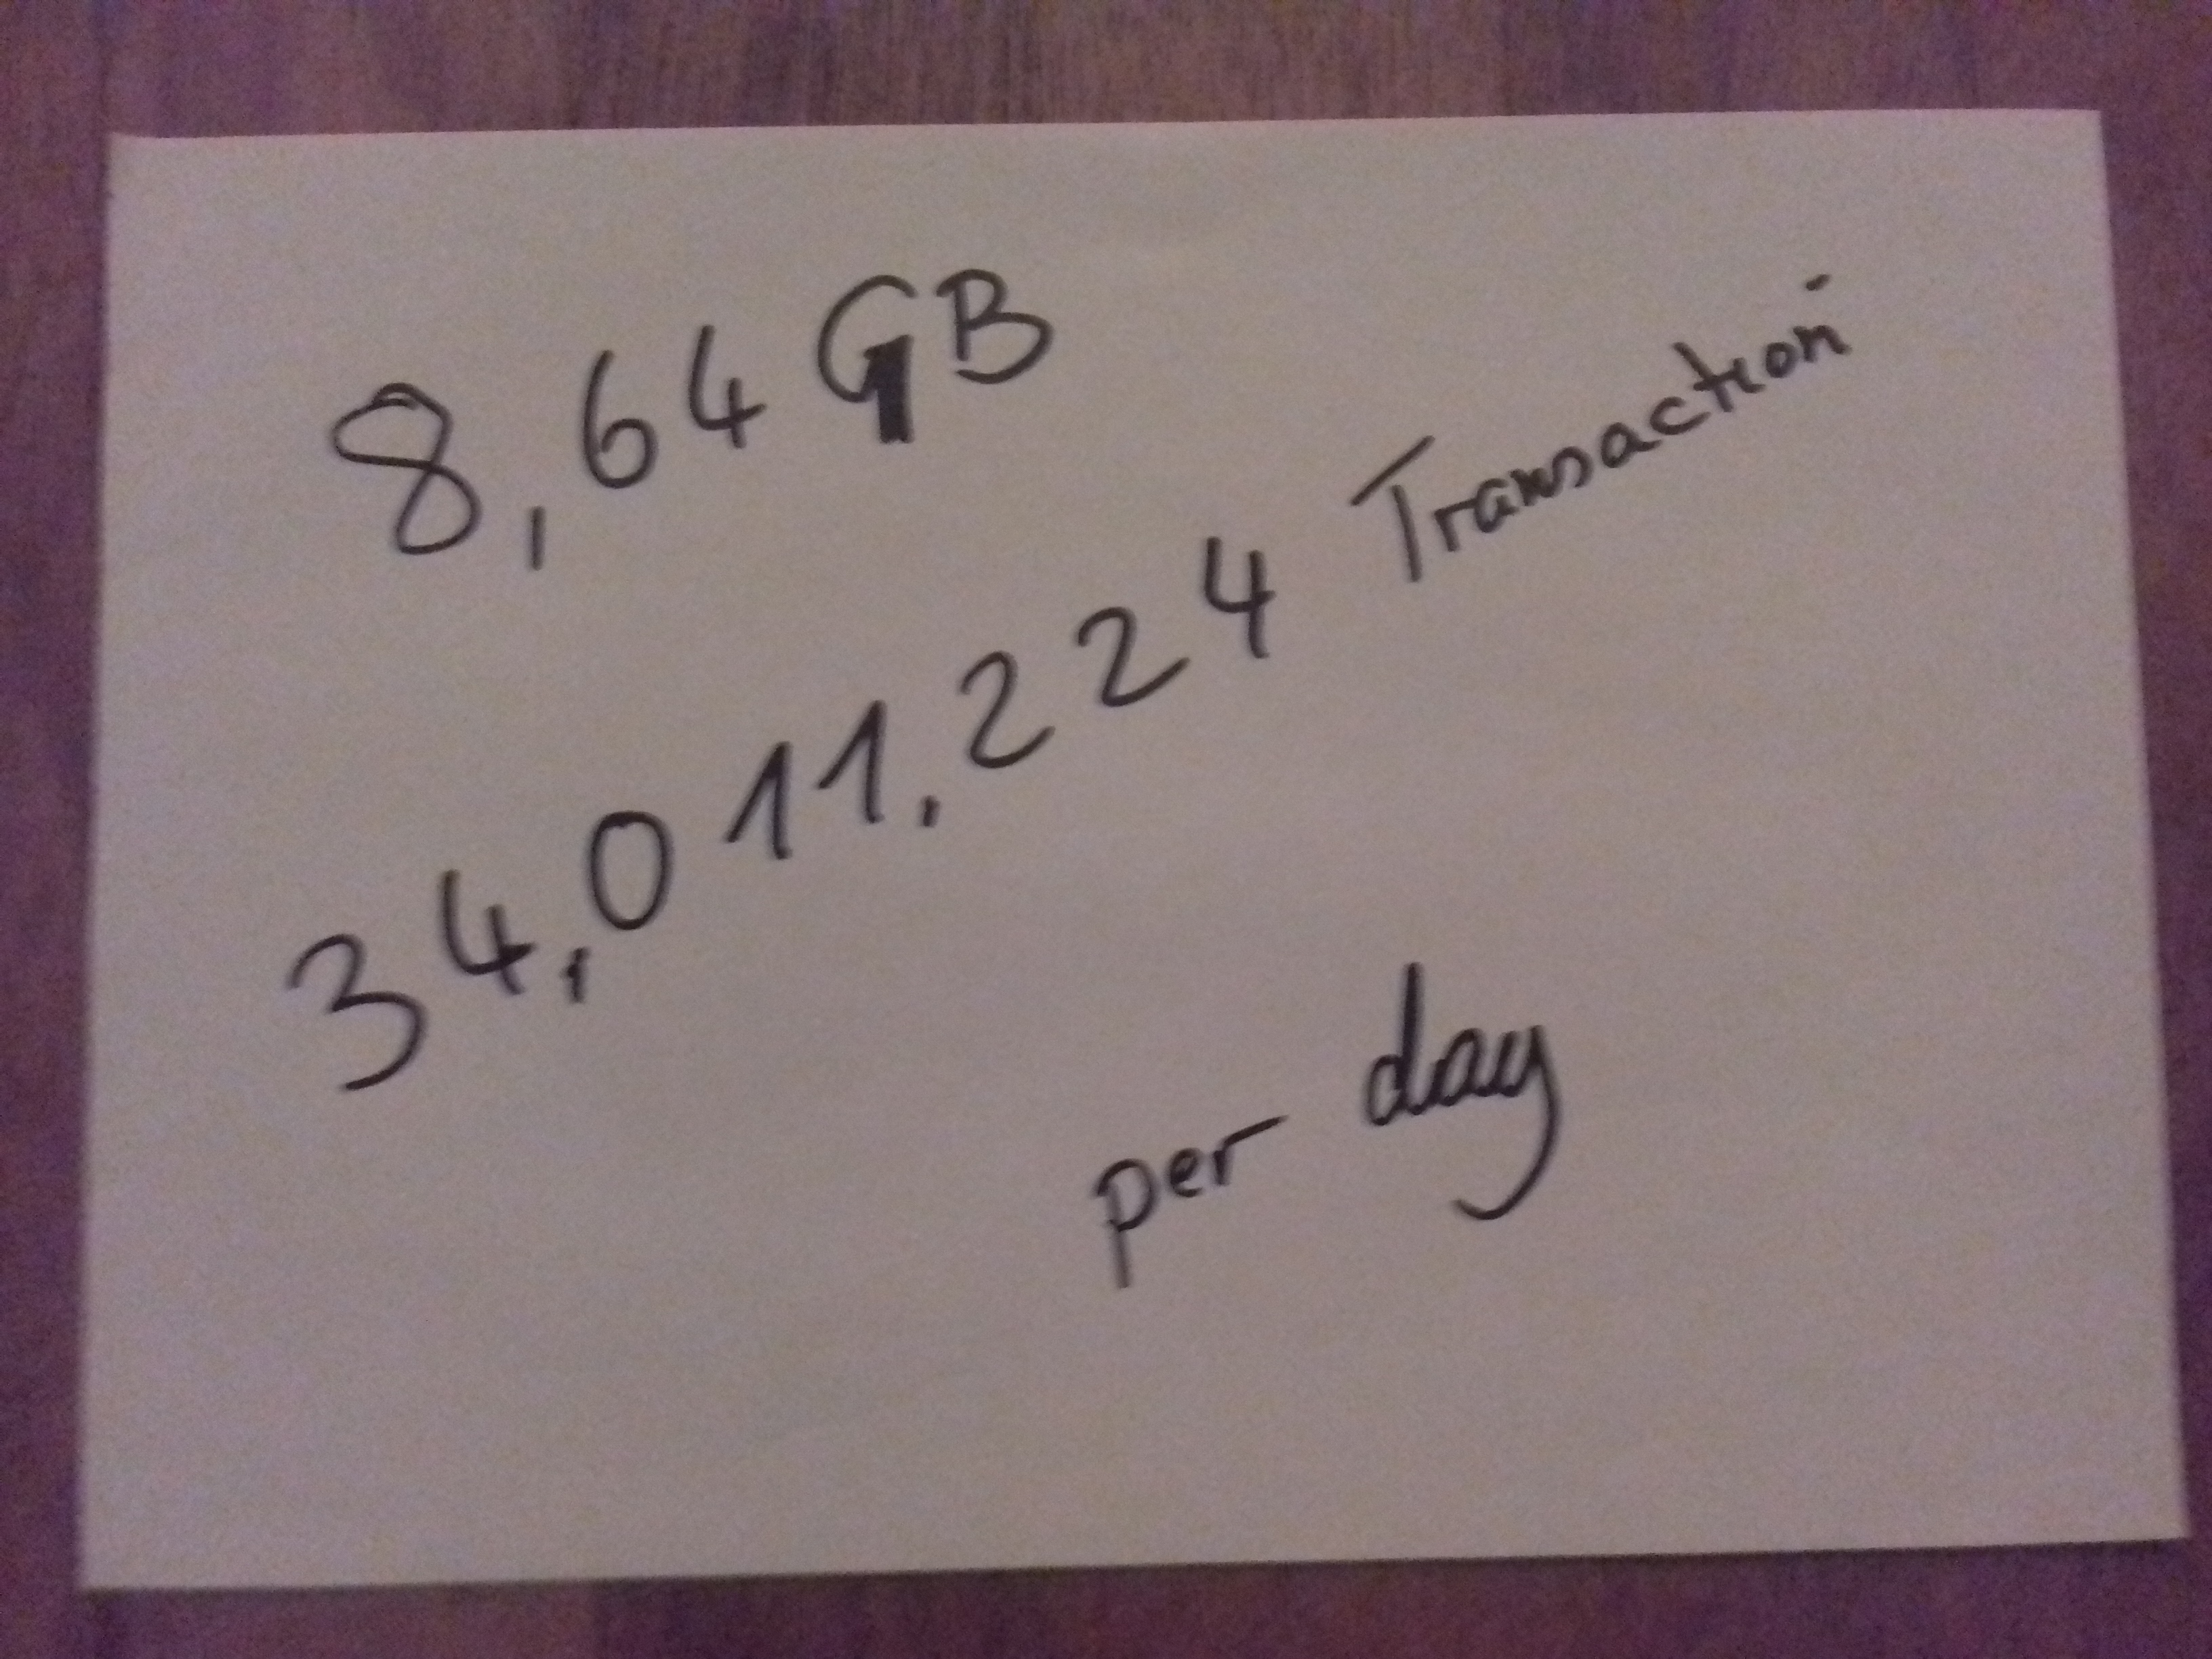 8,64 GB
34,011.224 Transaction
per day